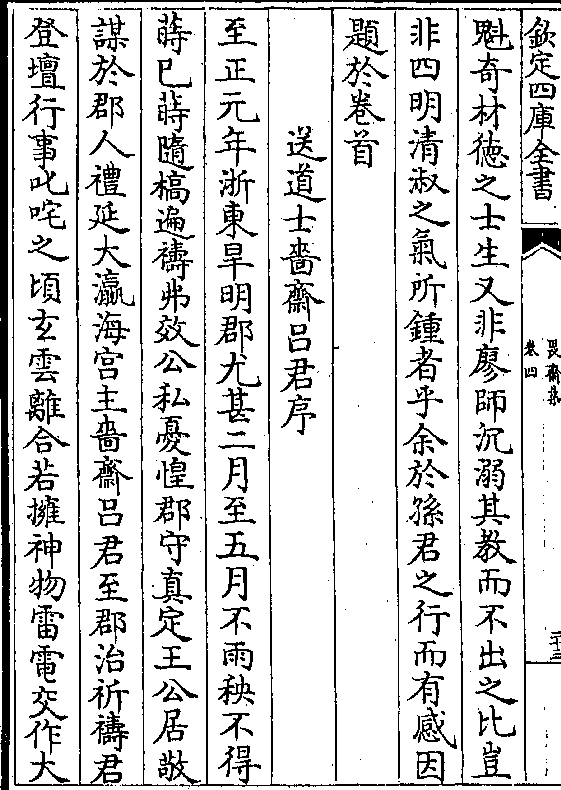 欽定四庫全書
畏齋集
卷四
二十三
魁奇材徳之士生又非廖師沉溺其教而不出之比豈
非四明清淑之氣所鍾者乎余於孫君之行而有感因
題於卷首
送道士嗇齋吕君序
至正元年浙東旱明郡尤甚二月至五月不雨秧不得
蒔已蒔隨槁遍禱弗效公私憂惶郡守真定王公居敬
謀於郡人禮延大瀛海宫主嗇齋吕君至郡治祈禱君
登壇行事叱咤之頃玄雲離合若擁神物雷電交作大